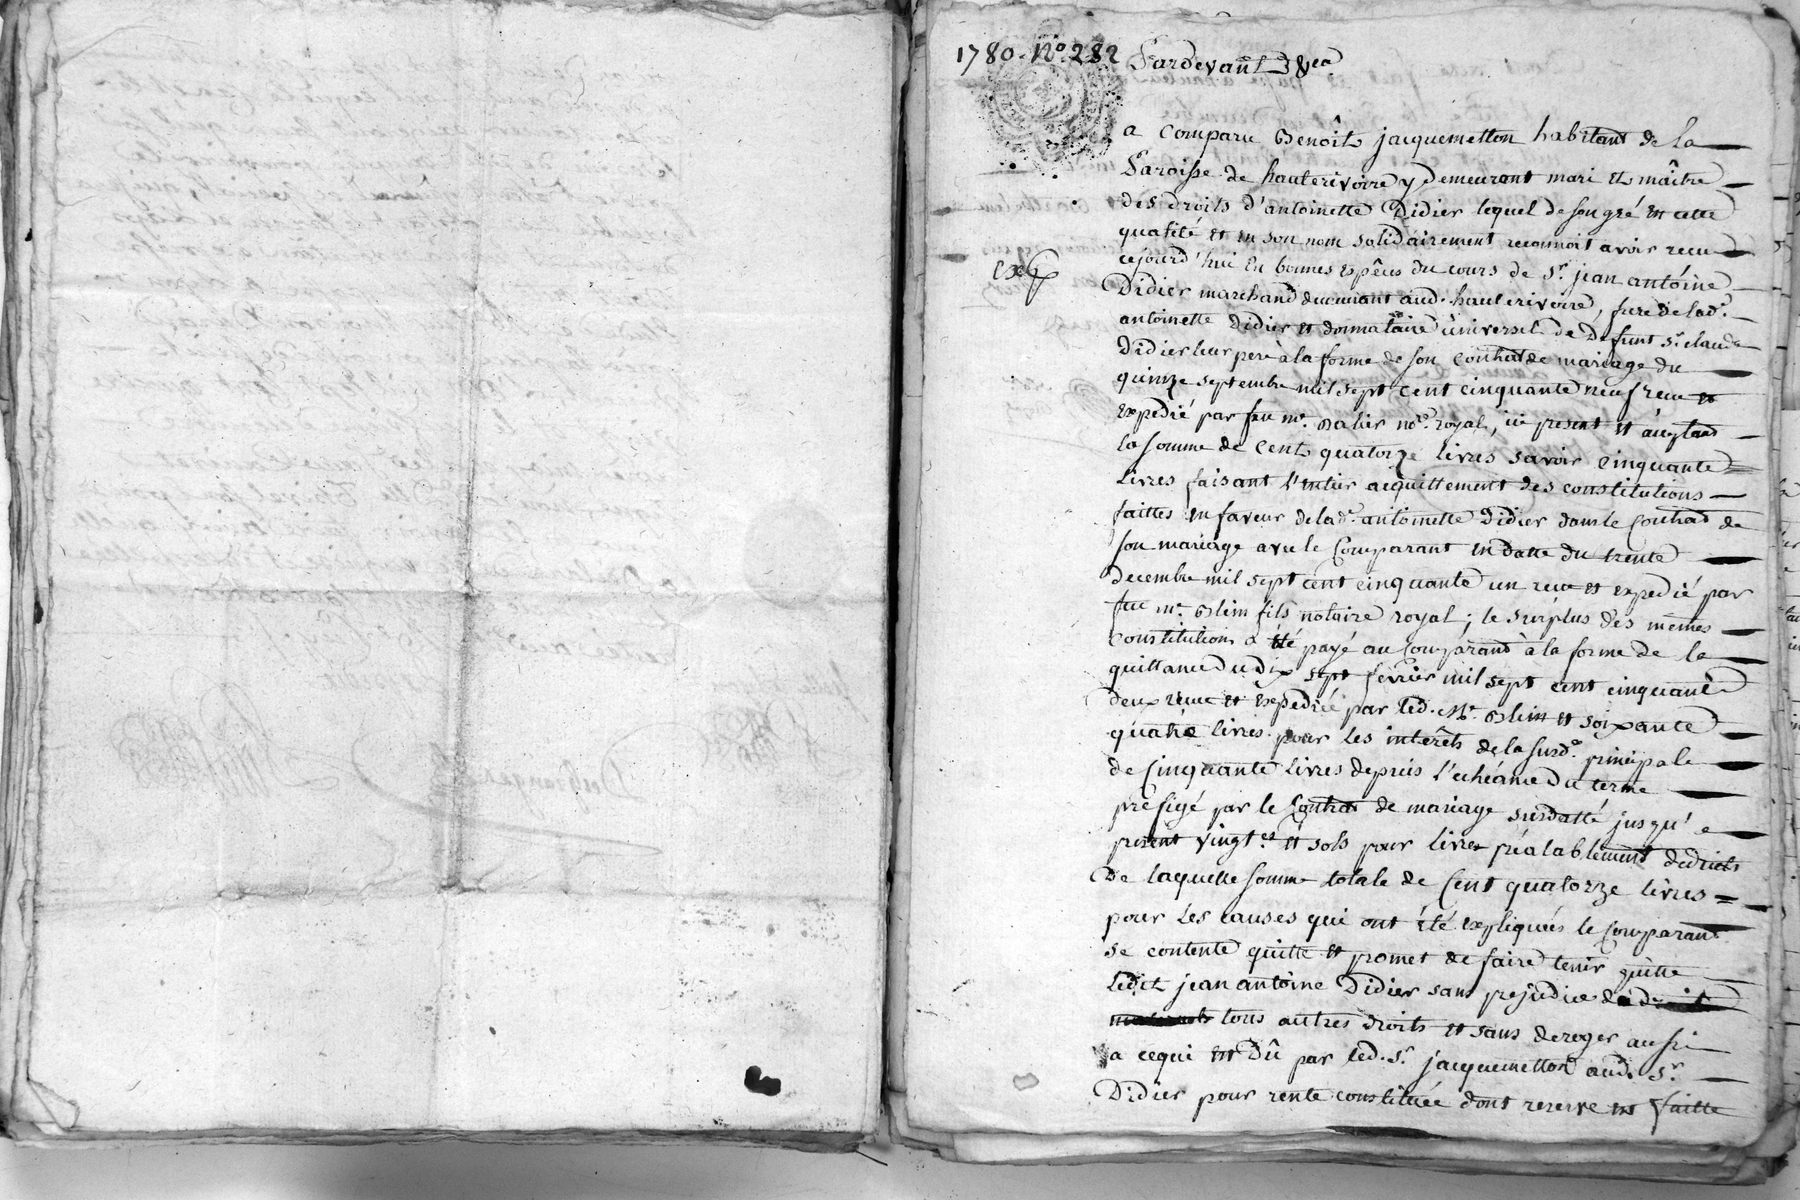 1780. N.o 282 Pardevant &ca
a comparu Benoît jacquemetton habitant de la
Paroisse de hauterivoire y demeurant mari et maître
des droits d'antoinette Didier lequel de son gré en cette
qualité et en son nom solidairement reconnoit avoir recu
cejourd'hui en bonnes espèces du cours de Sr. jean antoine
Exp
Didier marchand demeurant aud. hauterivoire, frere de lad.e
antoinette Didier et donnataire universel de Defunt Sr. claude
Didier leur pere à la forme de son contrat de mariage du
quinze septembre mil sept cent cinquante neuf recu et
expedié par feu me. no.re royal, ici present et acceptant
la somme de cent quatorze livres savoir cinquante
livres faisant l'entier acquittement des constitutions
faittes en faveur de lad.e antoinette Didier dans le contrat de
son mariage avec le comparant en datte du trente
decembre mil sept cent cinquante un recu et expedié par
feu me. Blein fils notaire royal; le surplus des mêmes
constitutions a été payé au comparant à la forme de la
quittance du dix sept fevrier mil sept cent cinquante
deux recue et expediée par led. Me. Blein et soixante
quatre livres pour les intérêts de la susd.e principale
de cinquante livres depuis l'echéance du terme
préfigé par le contrat de mariage susdatté jusqu'a
present vingt.es et sols pour livre préalablement deduits
De laquelle somme totale de cent quatorze livres
pour les causes qui ont été expliquées le comparant
se contente quitte et promet de faire tenir quitte
ledit jean antoine Didier sans prejudice de
tous autres droits et sans deroger aussi
a cequi est dû par led. Sr. jacquemetton aud. Sr.
Didier pour rente constituée dont reserve est faitte